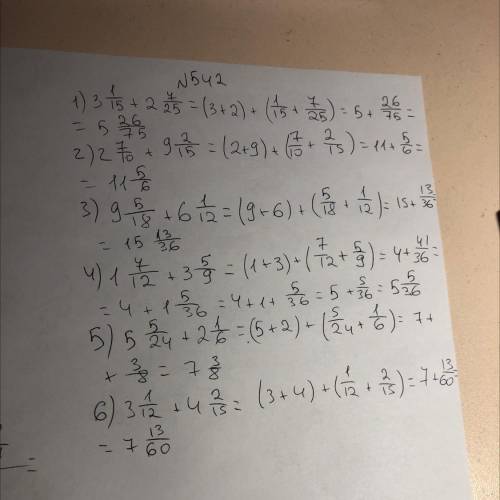 №542
1) 3 1/15 + 2 7/25 = (3+2) + (1/15 + 7/25) = 5 + 26/75 =
= 5 26/75
2) 2 7/10 + 9 2/15 = (2+9) + (7/10 + 2/15) = 11 + 5/6 =
= 11 5/6
3) 9 5/18 + 6 1/12 = (9+6) + (5/18 + 1/12) = 15 + 13/36
= 15 13/36
4) 1 7/12 + 3 5/9 = (1+3) + (7/12 + 5/9) = 4 + 41/36 =
= 4 + 1 5/36 = 4 + 1 + 5/36 = 5 + 5/36 = 5 5/36
5) 5 5/24 + 2 1/6 = (5+2) + (5/24 + 1/6) = 7 +
+ 3/8 = 7 3/8
6) 3 1/12 + 4 2/15 = (3+4) + (1/12 + 2/15) = 7 + 13/60
= 7 13/60